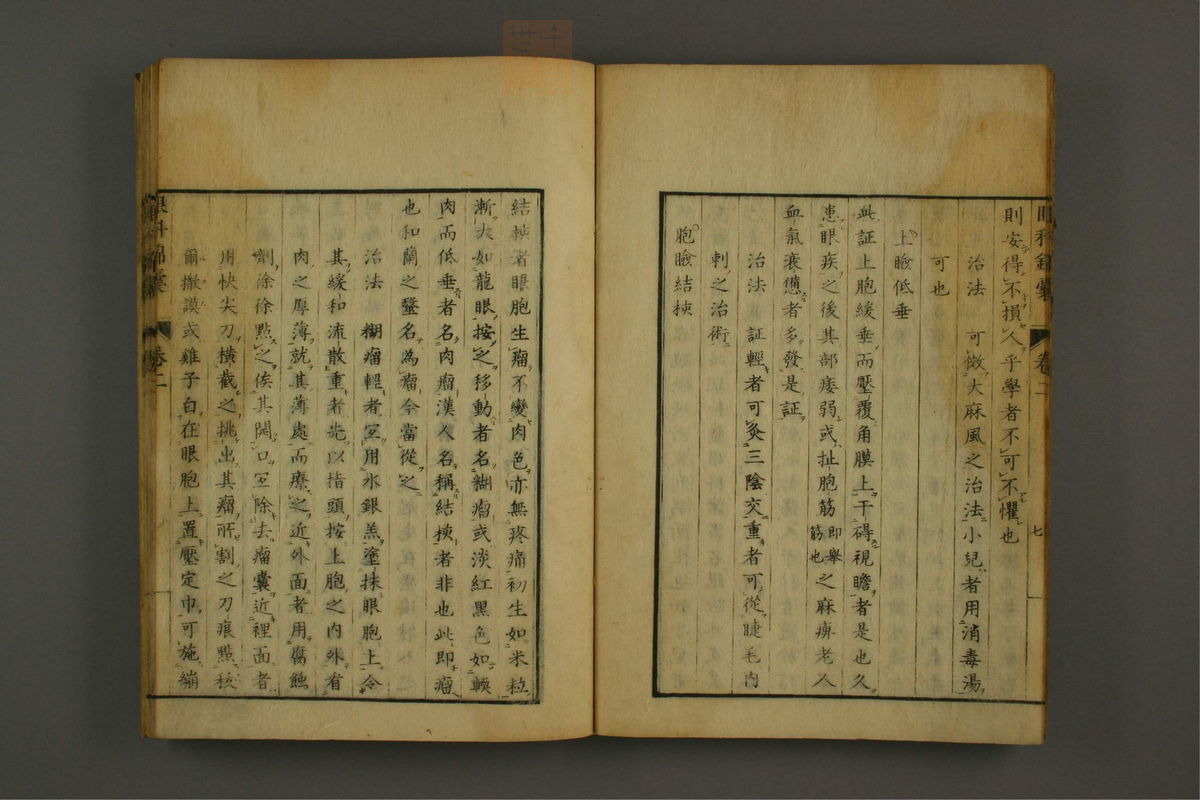 則安得不損人乎學者不可不懼也
治法 可倣大麻風之治法小兒者用消毒湯
可也
上瞼低垂
此証上胞緩垂而壓覆角膜上干碍視瞻者是也久
患眼疾之後其部痿弱或扯胞筋即舉筋也之麻痺老人
血氣衰憊者多發是証
治法 証輕者可灸三陰交重者可從睫毛内
刺之治術
胞瞼結核
七
眼科錦囊 卷二
結核者眼胞生瘤不變肉色亦無疼痛初生如米粒
漸大如龍眼按之移動者名餬瘤或淡紅黑色如輭
肉而低垂者名肉瘤漢人名稱結核者非也此即瘤
也和蘭之醫名為瘤今當從之
治法 餬瘤輕者宜用水銀羔塗抹眼胞上令
其緩和流散重者先以指頭按上胞之内外看
肉之厚薄就其薄處而療之近外面者用腐蝕
劑徐徐點之俟其開口宜除去瘤囊近裡面者
用快尖刀橫截之挑出其瘤所割之刀痕點校
爾撒謨或雞子白在眼胞上置壓定巾可施繃
眼科錦囊 卷二